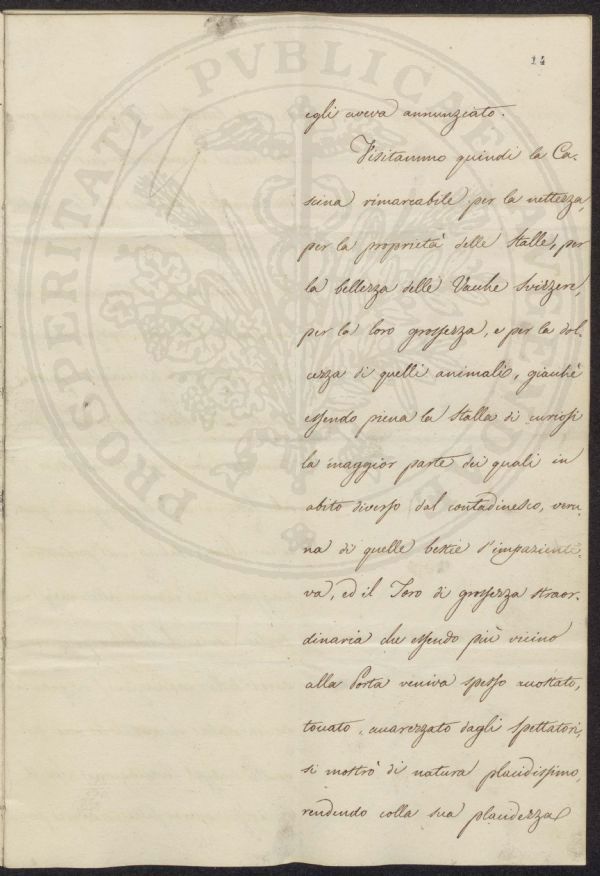 14
egli aveva annunziato.
Visitammo quindi la Ca-
scina rimarcabile per la nettezza,
per la proprietà delle Stalle, per
la bellezza delle Vacche Svizzere,
per la loro grossezza, e per la dol-
cezza di quelli animali, giacchè
essendo piena la Stalla di curiosi
la maggior parte dei quali in
abito diverso dal contadinesco, veru-
na di quelle bestie s'impazienti-
va, ed il Toro di grossezza straor-
dinaria che essendo più vicino
alla Porta veniva spesso accostato,
toccato, accarezzato dagli Spettatori,
si mostrò di natura placidissimo,
rendendo colla sua placidezza
PROSPERITATI PVBLICAE